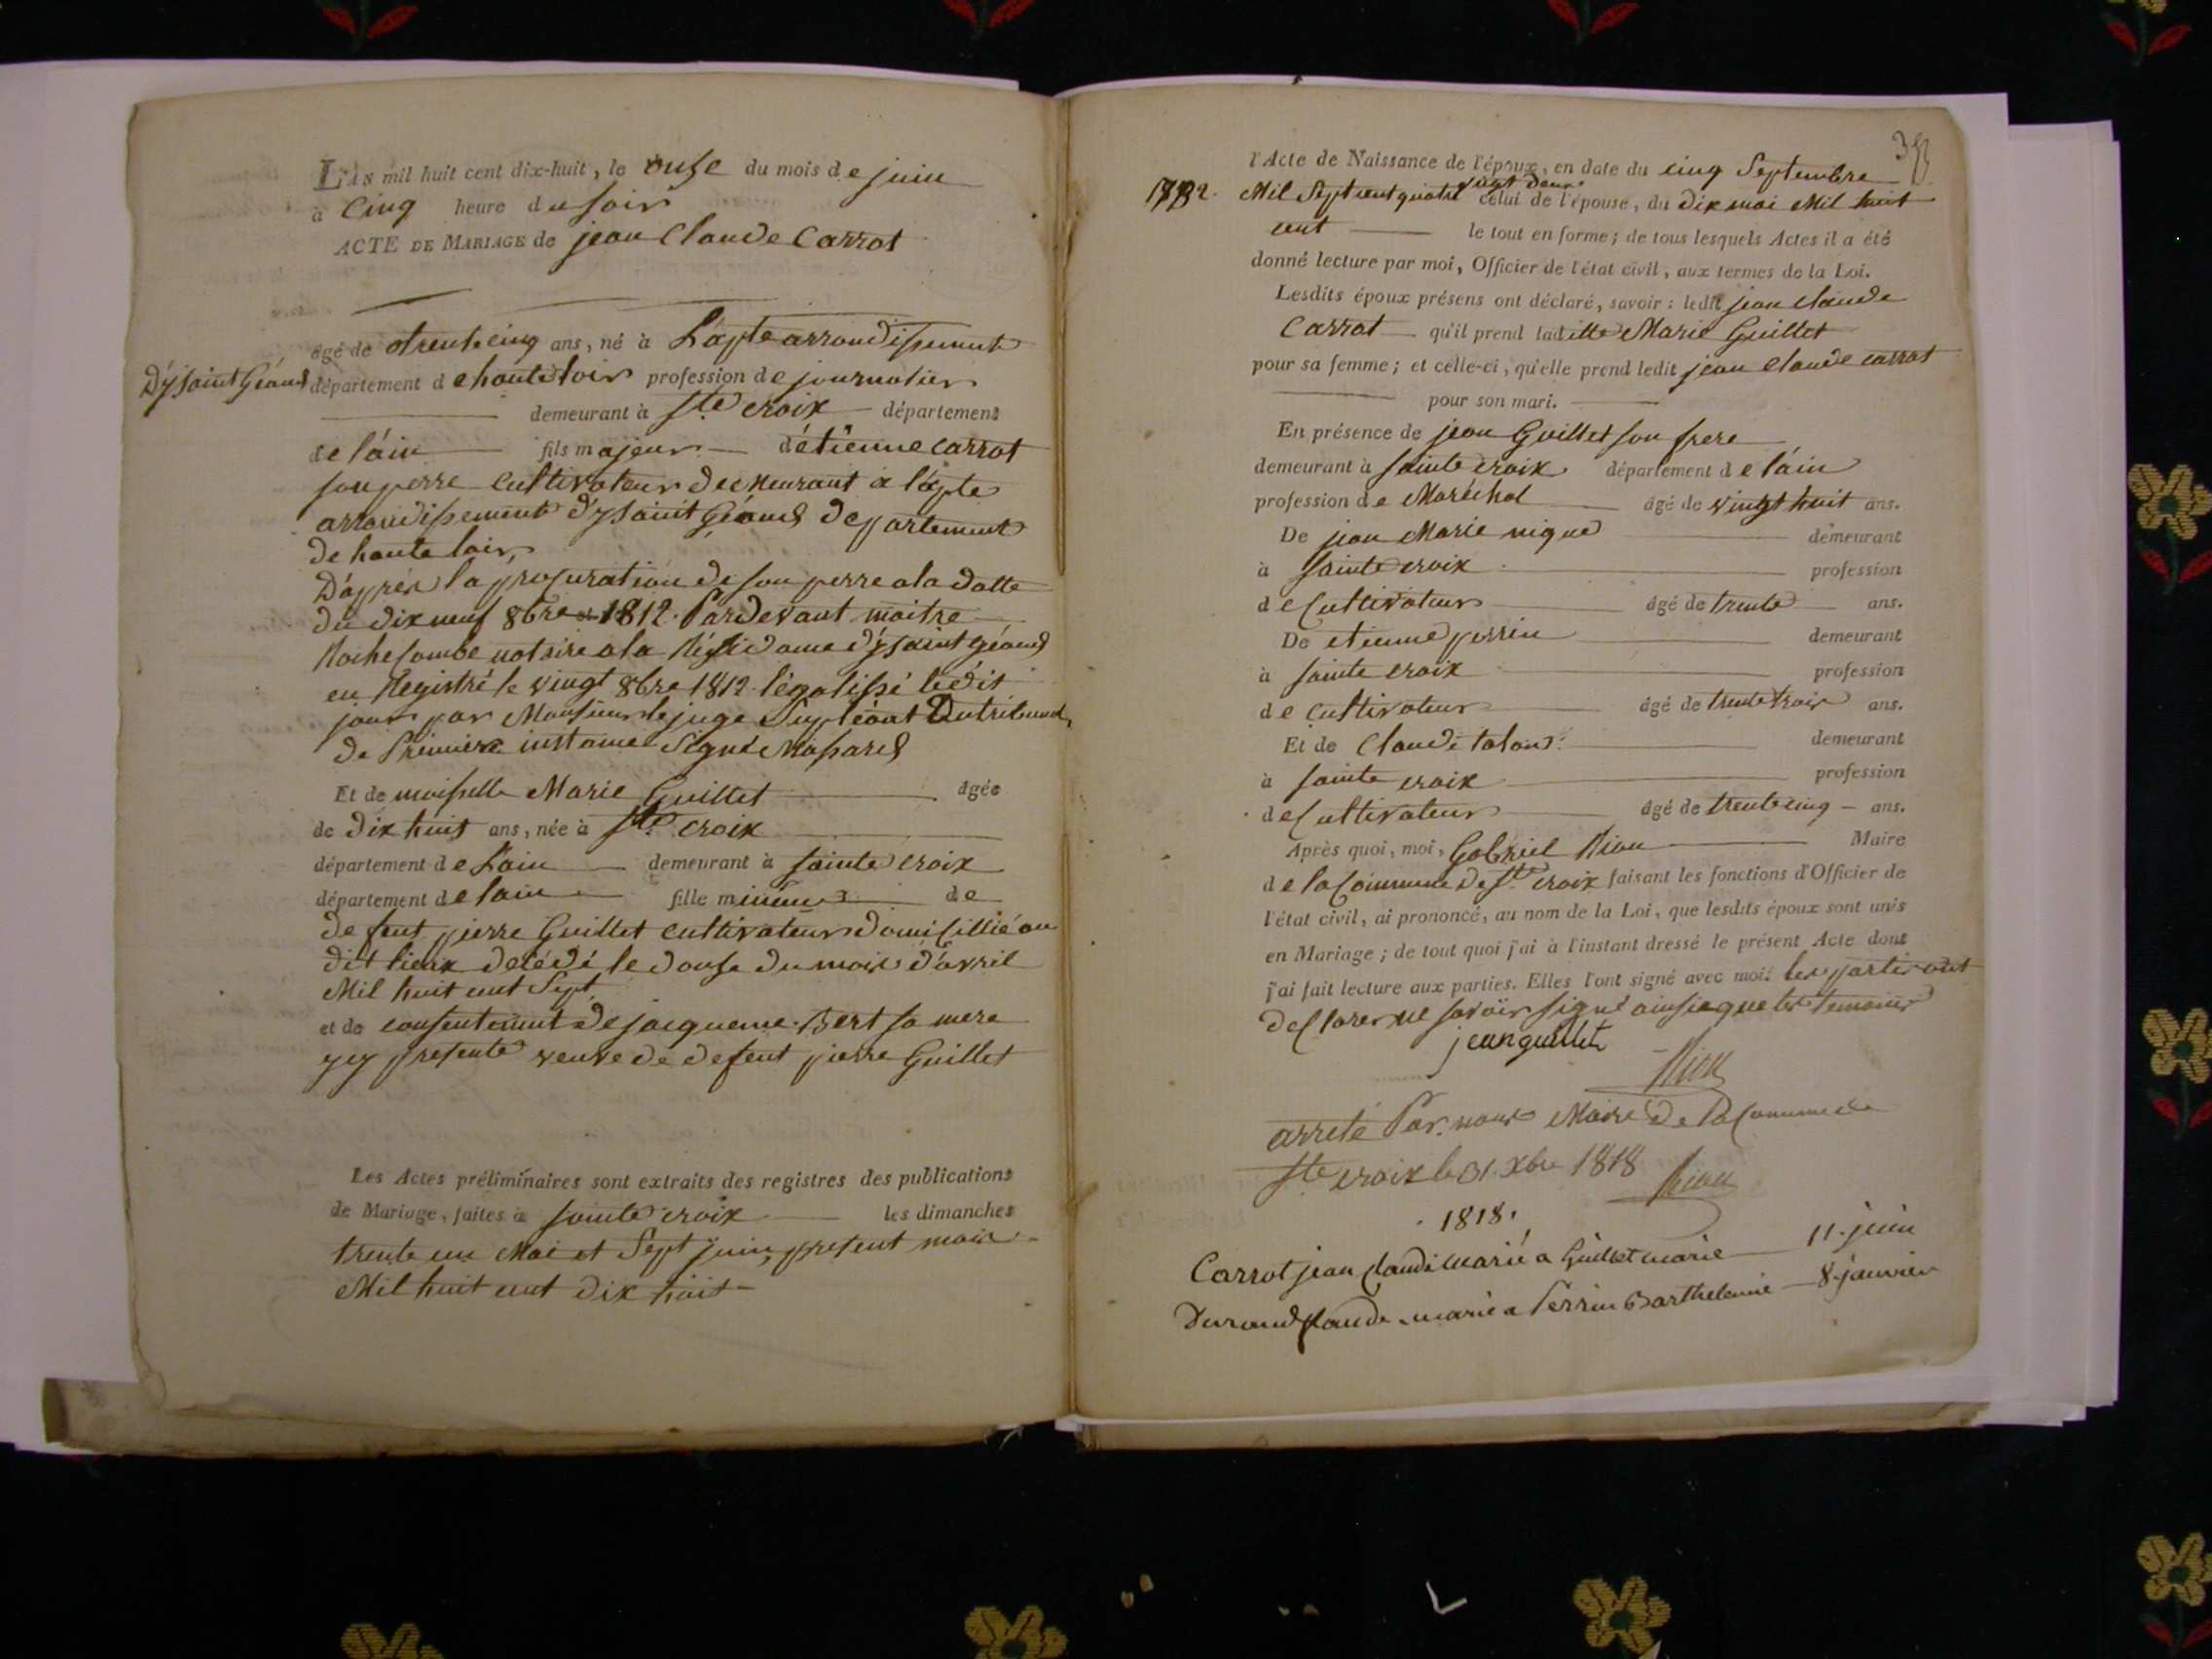 L'AN mil huit cent dix-huit, le onse du mois de juin
à Cinq heure du soir
ACTE DE MARIAGE de jean Claude Carrot
âgé de trente cinq ans, né à Lapte arrondissement
D'ysaint Géaux département de haute loir profession de journalier
demeurant à Ste croix département
de l'ain fils majeur d'étienne carrot
son perre cultivateur demeurant à lapte
arrondissement d'ysaint Géaux departement
de haute loir
D'après la procuration de son perre a la datte
du dix neuf 8bre 1812. Pardevant maitre
notaire a la Résidance d'ysaint géaux
en Registré le vingt 8bre 1812. légalissé ledit
jour par Monsieur le juge Supléant Du tribunal
de Première instance Signé
Et de moiselle Marie Guillet âgée
de dix huit ans, née à Ste croix
département de Lain demeurant à sainte croix
département de lain fille mineur de
de feut pierre Guillet cultivateur domicillié au
dit lieux decédé le douse du mois d'avril
Mil huit cent Sept
et de consentement de jacqueme Bert sa mere
ycy presente veuve de defeut pierre Guillet
Les Actes préliminaires sont extraits des registres des publications
de Mariage, faites à sainte croix les dimanches
trente un Mai et Sept juin present mois
Mil huit cent dix huit
l'Acte de Naissance de l'époux, en date du cinq Septembre
1782. Mil Sept cent quatre vingt deux celui de l'épouse, du dix mai Mil huit
cent le tout en forme; de tous lesquels Actes il a été
donné lecture par moi, Officier de l'état civil, aux termes de la Loi.
Lesdits époux présens ont déclaré, savoir: ledit jean claude
Carrot qu'il prend laditte Marie Guillet
pour sa femme; et celle-ci, qu'elle prend ledit jean claude carrot
pour son mari.
En présence de jean Guillet son frere
demeurant à sainte croix département de l'ain
profession de Maréchal âgé de vingt huit ans.
De jean Marie nique demeurant
à sainte croix profession
de Cultivateur âgé de trente ans.
De etienne perrin demeurant
à sainte croix profession
de cultivateur âgé de trente trois ans.
Et de Claude talon demeurant
à sainte croix profession
de Cultivateur âgé de trente cinq ans.
Après quoi, moi, Gabriel Maire
de la Commune de Ste croix faisant les fonctions d'Officier de
l'état civil, ai prononcé, au nom de la Loi, que lesdits époux sont unis
en Mariage; de tout quoi j'ai à l'instant dressé le présent Acte dont
j'ai fait lecture aux parties. Elles l'ont signé avec moi. les parti ont
declarer ne savoir signé ainsi que les temoins
jean guillet
arreté Par nous Maire de la Commune de
Ste croix le 31. Xbre 1818
1818.
Carrot jean claude marié a Guillet marie 11. juin
Durand claude marié a Perrin Barthelemie 8. janvier